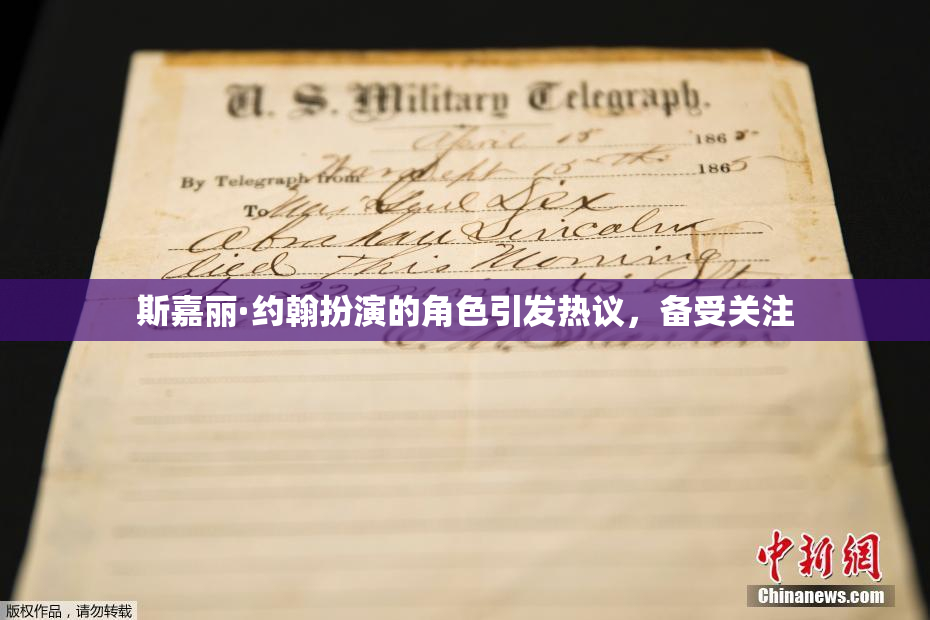 U. S. Military Telegraph.
April 15 1865
By Telegraph from War Dept 15th 1865
To Maj Genl Dix
Abraham Lincoln
died This Morning
at 22 minutes after
斯嘉丽·约翰扮演的角色引发热议，备受关注
E. M. Stanton
中新網
Chinanews.com
版权作品，请勿转载